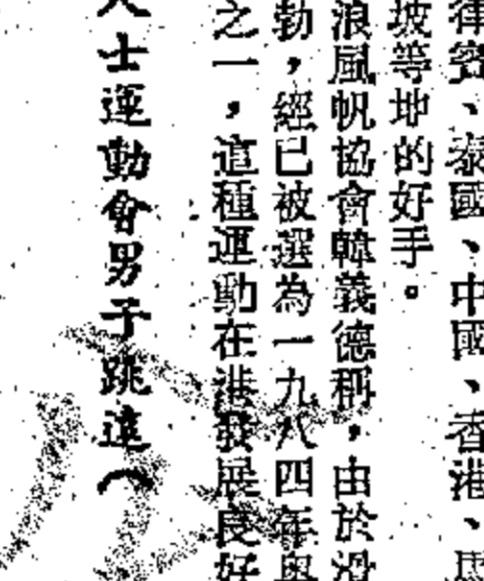 律賓、泰國、中國、香港、馬
坡等地的好手。
浪風帆協會韓義德稱，由於滑
勃，經已被選為一九八四年奧
之一，這種運動在港發展良好
人士運動會男子跳遠（